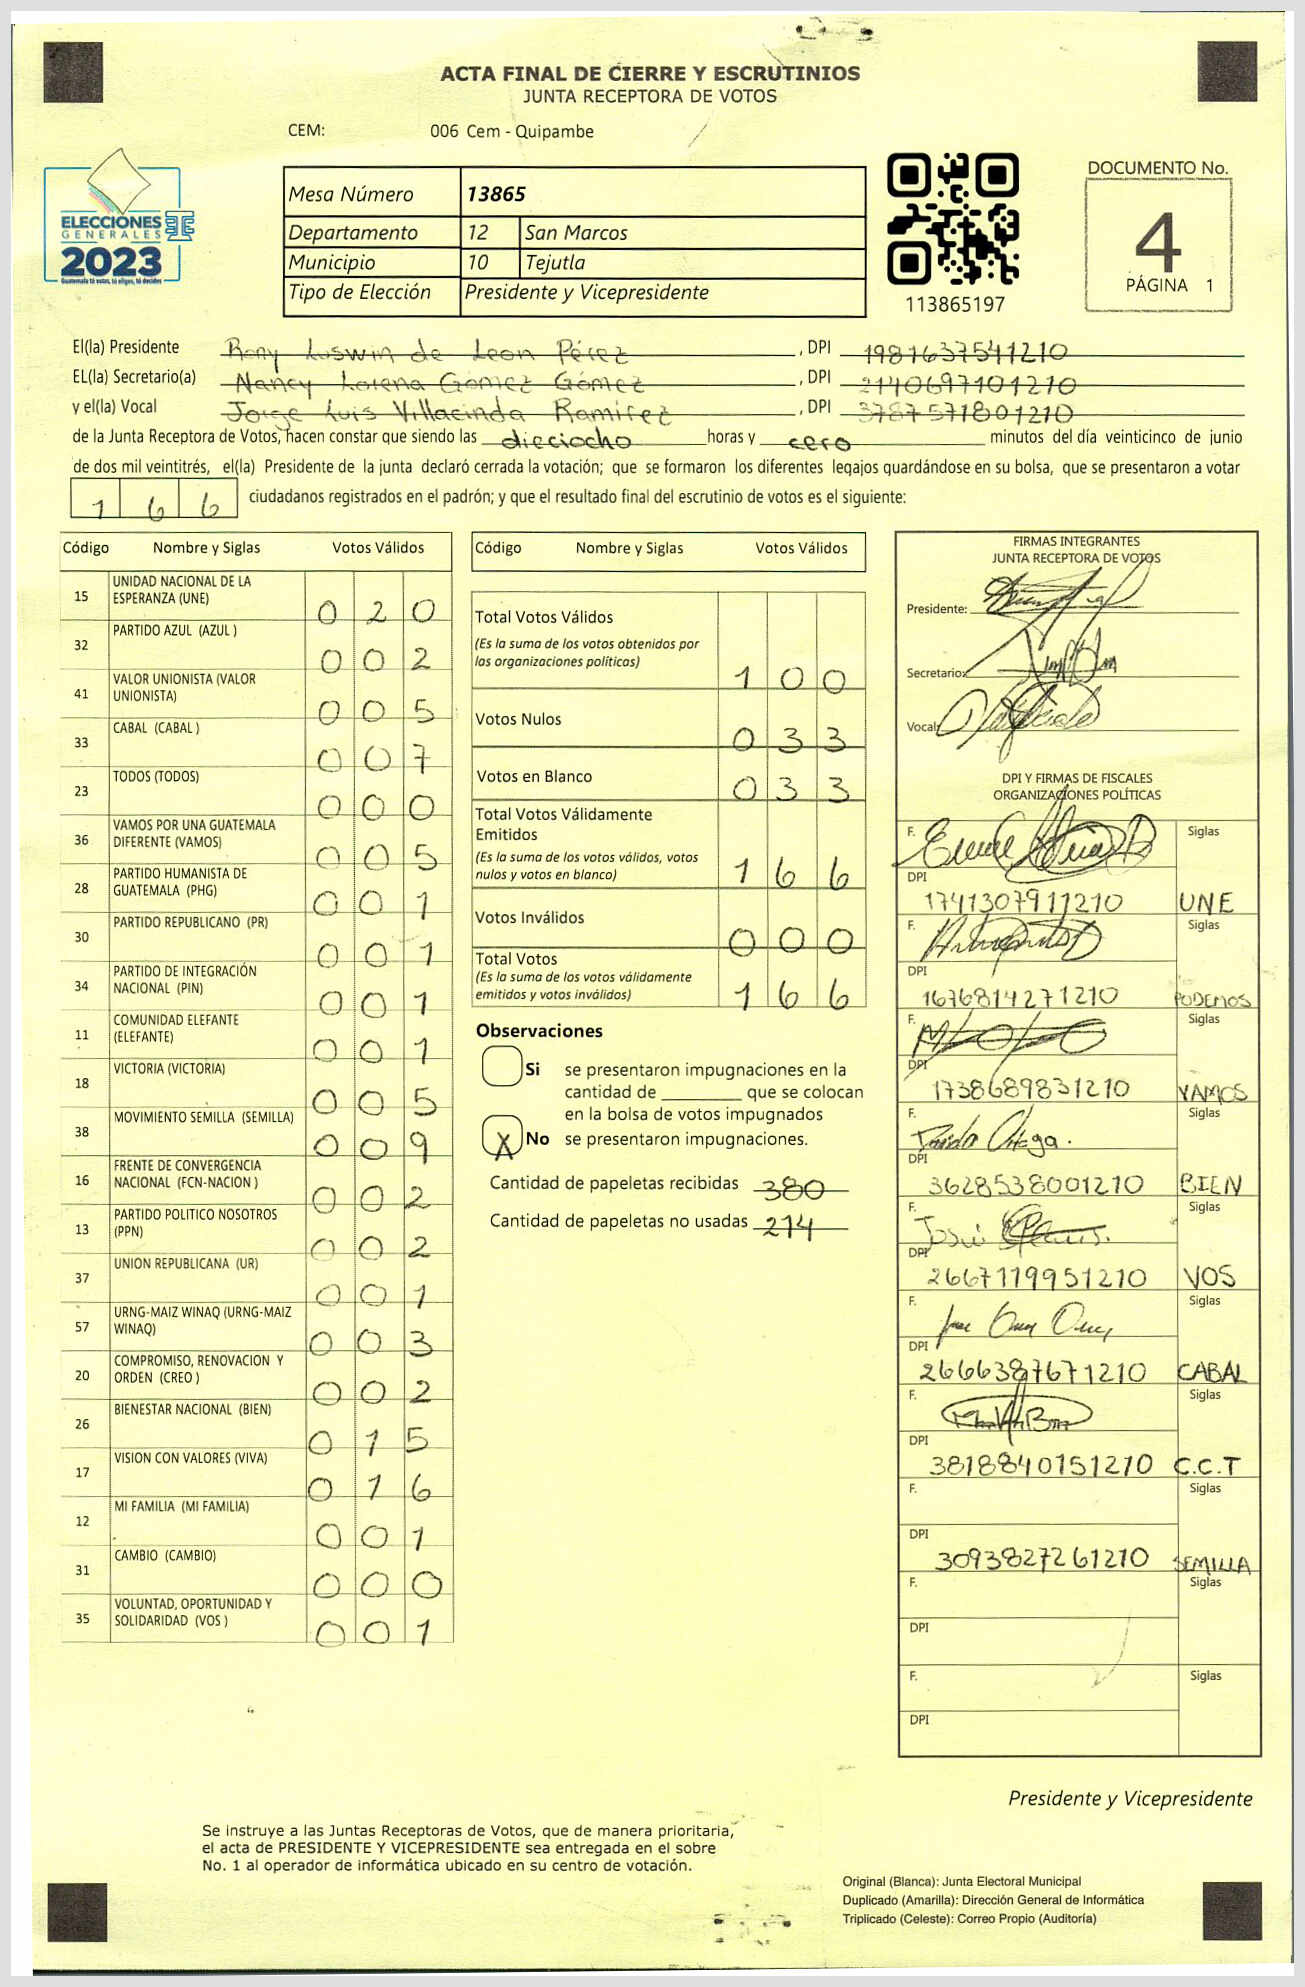 ACTA FINAL DE CIERRE Y ESCRUTINIOS
JUNTA RECEPTORA DE VOTOS
CEM: 006 Cem - Quipambe
ELECCIONES
GENERALES
2023
Guatemala tú votas, tú eliges, tú decides
Mesa Número 13865
Departamento 12 San Marcos
Municipio 10 Tejutla
Tipo de Elección Presidente y Vicepresidente
113865197
DOCUMENTO No.
4
PÁGINA 1
El(la) Presidente Rony Luswin de Leon Pérez, DPI 1981637541210
EL(la) Secretario(a) Nancy Lorena Gómez Gómez, DPI 2140697101210
y el(la) Vocal Jorge Luis Villacinda Ramírez, DPI 3787571801210
de la Junta Receptora de Votos, hacen constar que siendo las dieciocho horas y cero minutos del día veinticinco de junio
de dos mil veintitrés, el(la) Presidente de la junta declaró cerrada la votación; que se formaron los diferentes legajos guardándose en su bolsa, que se presentaron a votar
166 ciudadanos registrados en el padrón; y que el resultado final del escrutinio de votos es el siguiente:
Código Nombre y Siglas Votos Válidos
15 UNIDAD NACIONAL DE LA ESPERANZA (UNE) 020
32 PARTIDO AZUL (AZUL ) 002
41 VALOR UNIONISTA (VALOR UNIONISTA) 005
33 CABAL (CABAL ) 007
23 TODOS (TODOS) 000
36 VAMOS POR UNA GUATEMALA DIFERENTE (VAMOS) 005
28 PARTIDO HUMANISTA DE GUATEMALA (PHG) 001
30 PARTIDO REPUBLICANO (PR) 001
34 PARTIDO DE INTEGRACIÓN NACIONAL (PIN) 001
11 COMUNIDAD ELEFANTE (ELEFANTE) 001
18 VICTORIA (VICTORIA) 005
38 MOVIMIENTO SEMILLA (SEMILLA) 009
16 FRENTE DE CONVERGENCIA NACIONAL (FCN-NACION ) 002
13 PARTIDO POLITICO NOSOTROS (PPN) 002
37 UNION REPUBLICANA (UR) 001
57 URNG-MAIZ WINAQ (URNG-MAIZ WINAQ) 003
20 COMPROMISO, RENOVACION Y ORDEN (CREO ) 002
26 BIENESTAR NACIONAL (BIEN) 015
17 VISION CON VALORES (VIVA) 016
12 MI FAMILIA (MI FAMILIA) 001
31 CAMBIO (CAMBIO) 000
35 VOLUNTAD, OPORTUNIDAD Y SOLIDARIDAD (VOS ) 001
Código Nombre y Siglas Votos Válidos
Total Votos Válidos 100
(Es la suma de los votos obtenidos por
las organizaciones políticas)
Votos Nulos 033
Votos en Blanco 033
Total Votos Válidamente
Emitidos 166
(Es la suma de los votos válidos, votos
nulos y votos en blanco)
Votos Inválidos 000
Total Votos 166
(Es la suma de los votos válidamente
emitidos y votos inválidos)
Observaciones
Si se presentaron impugnaciones en la
cantidad de ________ que se colocan
en la bolsa de votos impugnados
X No se presentaron impugnaciones.
Cantidad de papeletas recibidas 380
Cantidad de papeletas no usadas 214
FIRMAS INTEGRANTES
JUNTA RECEPTORA DE VOTOS
Presidente:
Secretario:
Vocal:
DPI Y FIRMAS DE FISCALES
ORGANIZACIONES POLÍTICAS
F. Siglas
DPI 1741307911210 UNE
F. Siglas
DPI 1676814271210 PODEMOS
F. Siglas
DPI 1738689831210 VAMOS
F. Siglas
DPI 3628538001210 BIEN
F. Siglas
DPI 2667119951210 VOS
F. Siglas
DPI 2666387671210 CABAL
F. Siglas
DPI 3818840151210 C.C.T
F. Siglas
DPI 3093827261210 SEMILLA
F. Siglas
DPI
F. Siglas
DPI
Presidente y Vicepresidente
Se instruye a las Juntas Receptoras de Votos, que de manera prioritaria,
el acta de PRESIDENTE Y VICEPRESIDENTE sea entregada en el sobre
No. 1 al operador de informática ubicado en su centro de votación.
Original (Blanca): Junta Electoral Municipal
Duplicado (Amarilla): Dirección General de Informática
Triplicado (Celeste): Correo Propio (Auditoría)